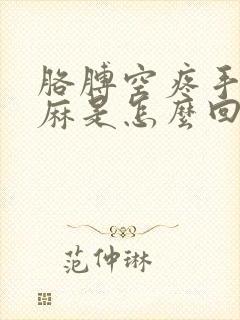 胳膊空疼手
麻是怎麼回
范仲琳